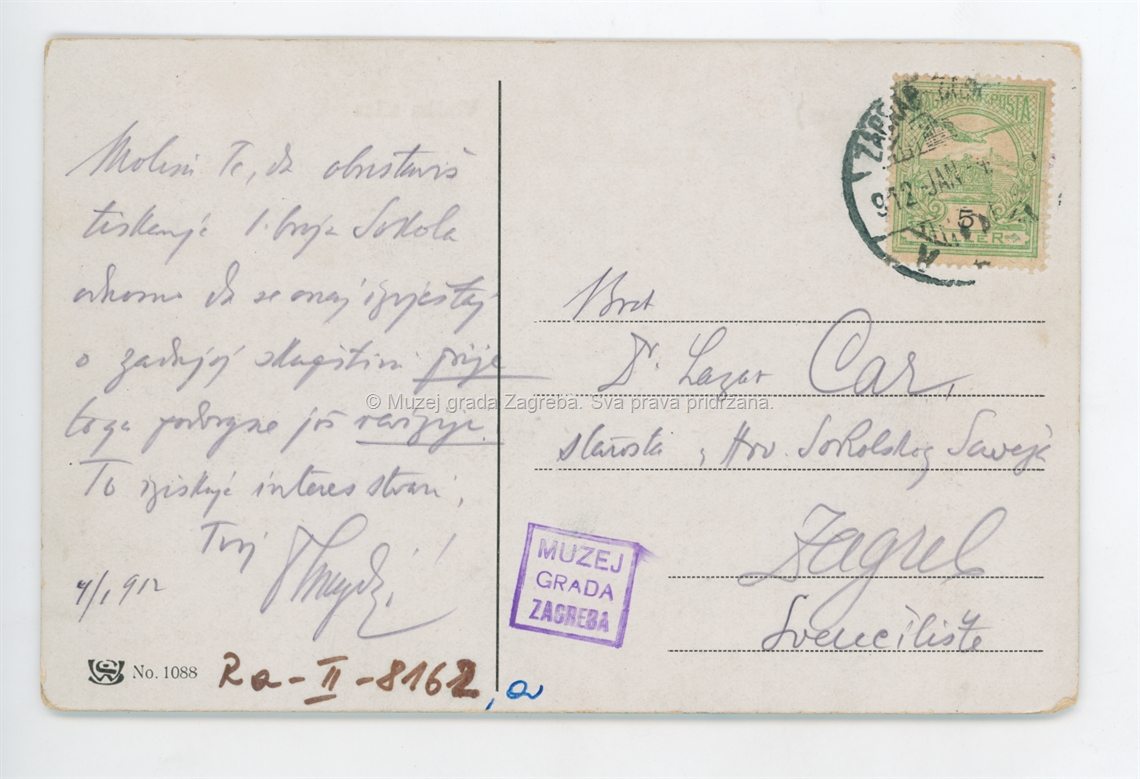 Molim Te, da obustaviš
tiskanje 1. broja Sokola
odnosno da se onaj izvještaj
o zadnjoj skupštini prije
toga podvrgne još reviziji.
To iziskuje interes stvari,
Tvoj
4/1 912
No. 1088
Ra-II-8162, a
ZAGRAB
912 JAN
MAGYAR KIR. POSTA
5
FILLÉR
Brat
Dr. Lazar Car,
starosta, Hrv. Sokolskog Saveza
Zagreb
Sveučilište
MUZEJ
GRADA
ZAGREBA
© Muzej grada Zagreba. Sva prava pridržana.